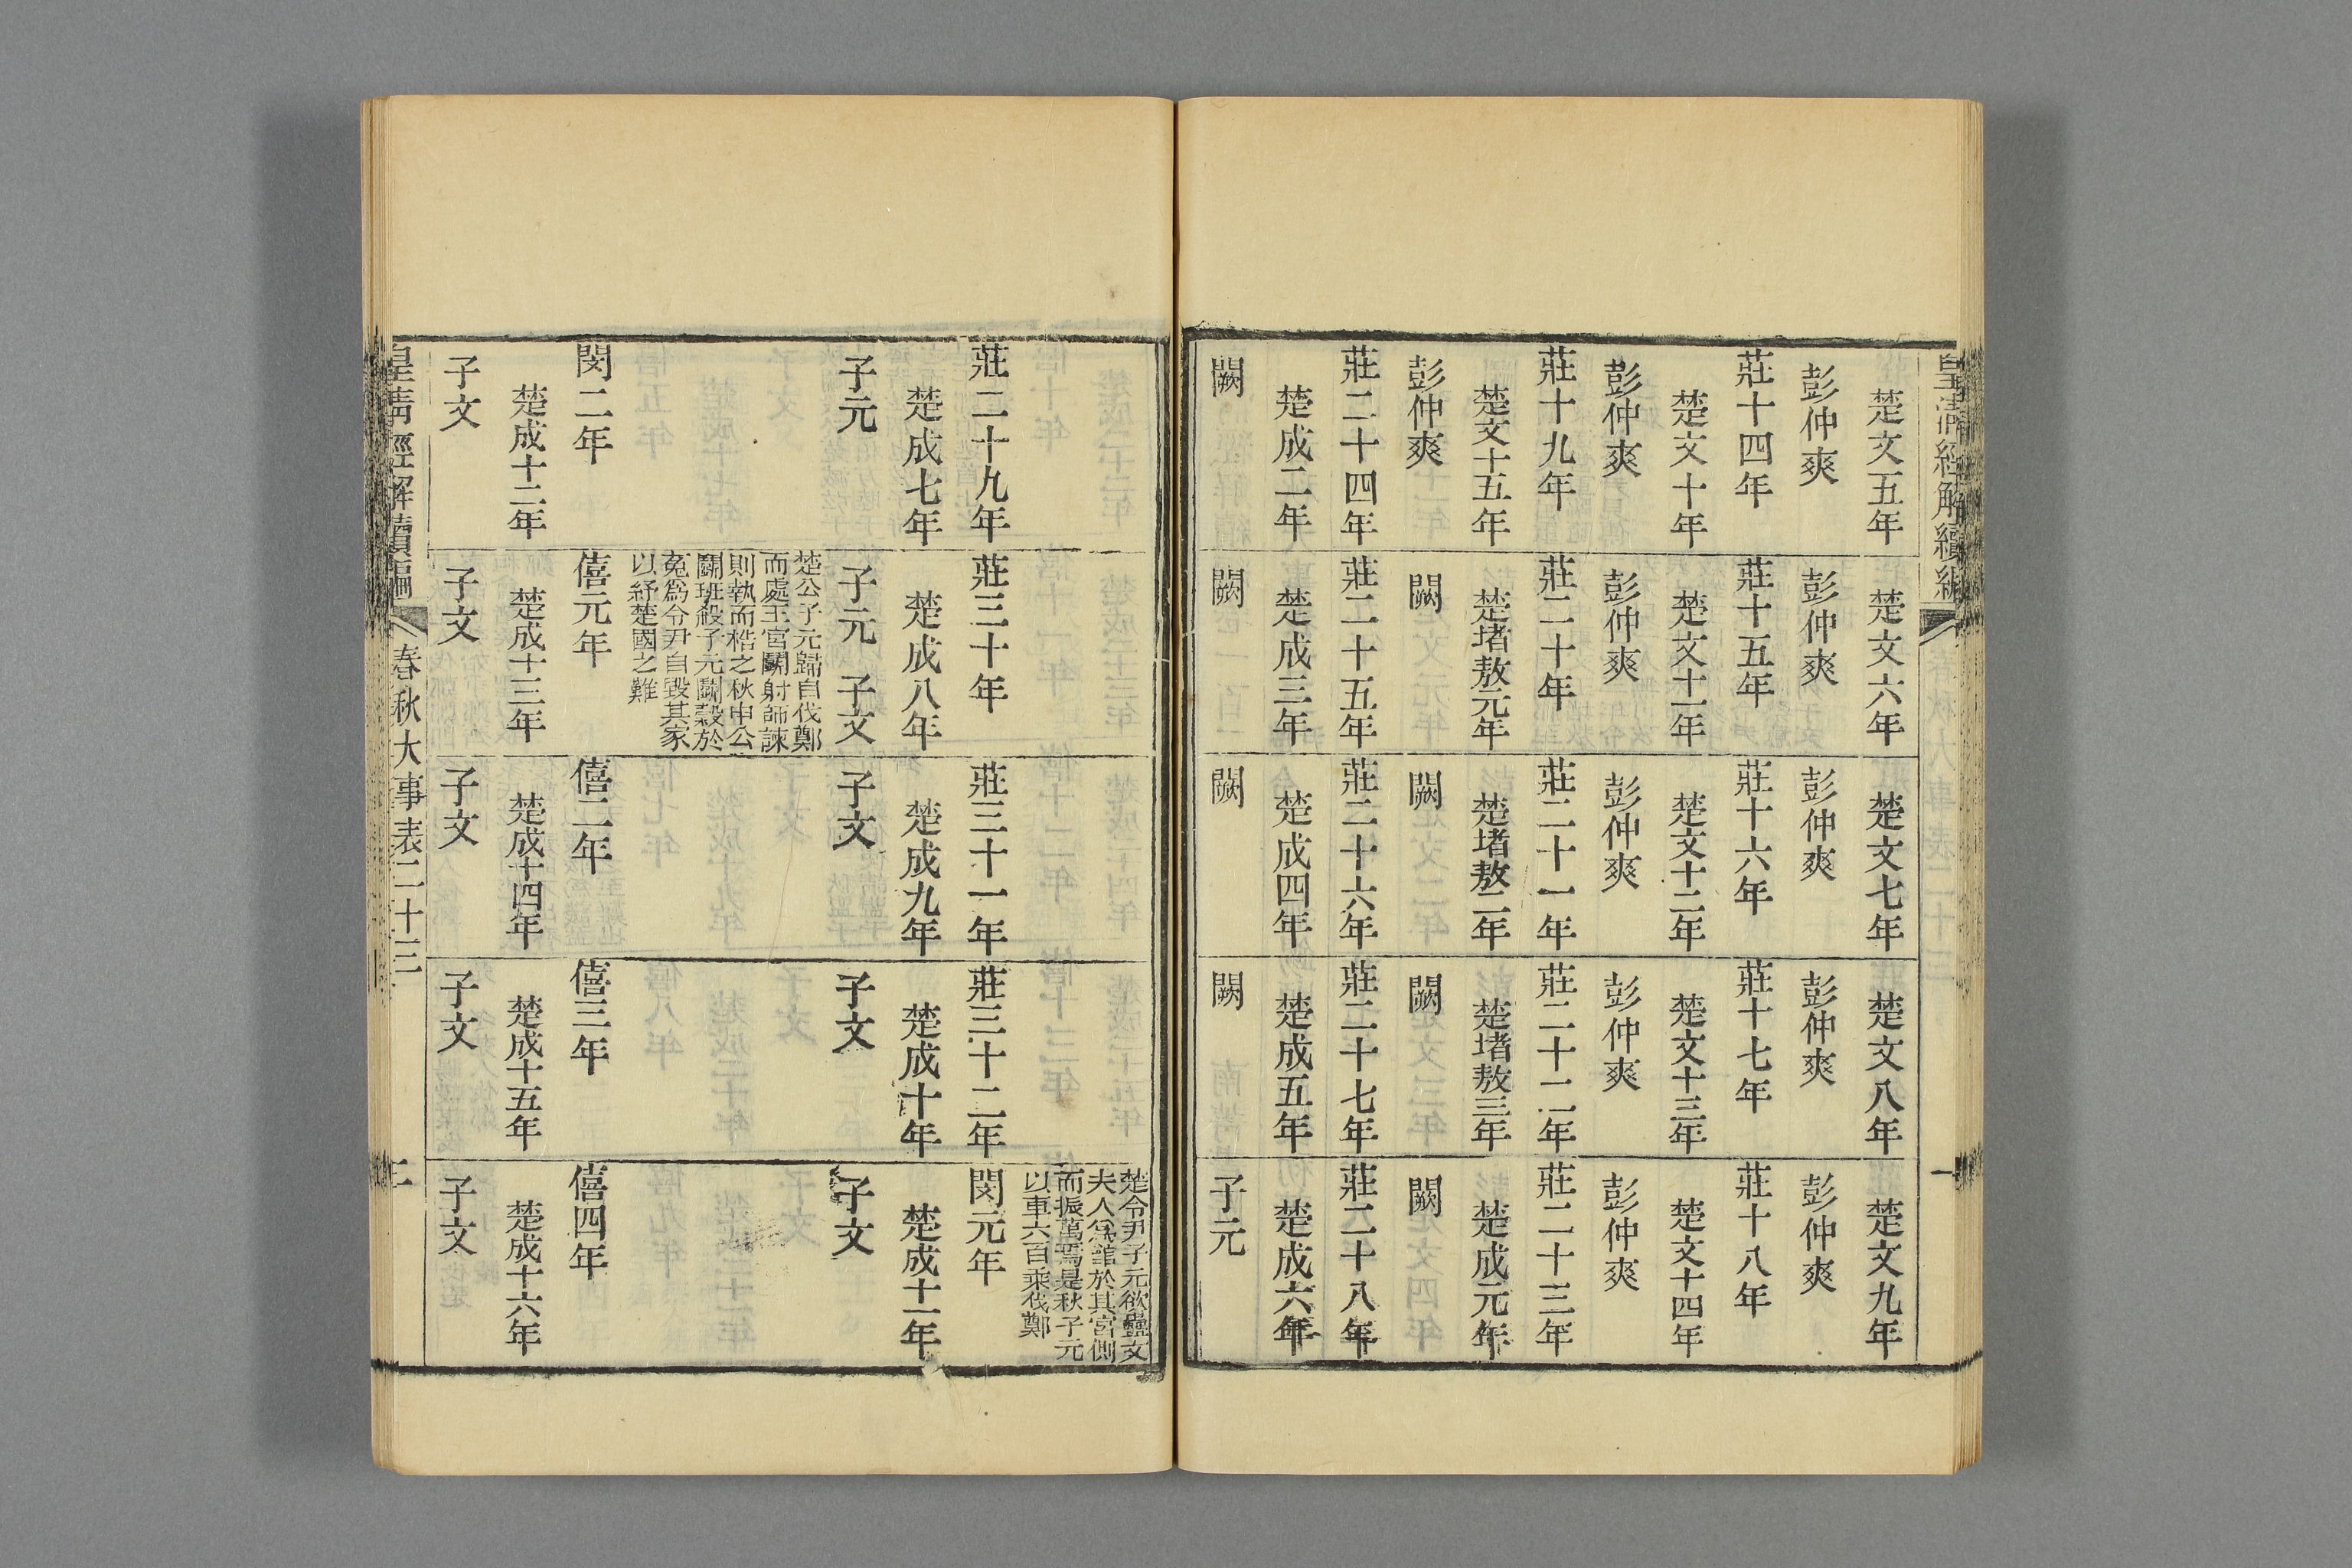 皇清經解續編 一
楚文五年 楚文六年 楚文七年 楚文八年 楚文九年
彭仲爽 彭仲爽 彭仲爽 彭仲爽 彭仲爽
莊十四年 莊十五年 莊十六年 莊十七年 莊十八年
楚文十年 楚文十一年 楚文十二年 楚文十三年 楚文十四年
彭仲爽 彭仲爽 彭仲爽 彭仲爽 彭仲爽
莊十九年 莊二十年 莊二十一年 莊二十二年 莊二十三年
楚文十五年 楚堵敖元年 楚堵敖二年 楚堵敖三年 楚成元年
彭仲爽 闕 闕 闕 闕
莊二十四年 莊二十五年 莊二十六年 莊二十七年 莊二十八年
楚成二年 楚成三年 楚成四年 楚成五年 楚成六年
闕 闕 闕 闕 子元
楚令尹子元欲蠱文
夫人爲館於其宮側
而振萬焉是秋子元
以車六百乘伐鄭
莊二十九年 莊三十年 莊三十一年 莊三十二年 閔元年
楚成七年 楚成八年 楚成九年 楚成十年 楚成十一年
子元 子元 子文 子文 子文 子文
楚公子元歸自伐鄭
而處王宮鬬射師諫
則執而梏之秋申公
鬬班殺子元鬬穀於
菟爲令尹自毀其家
以紓楚國之難
閔二年 僖元年 僖二年 僖三年 僖四年
楚成十二年 楚成十三年 楚成十四年 楚成十五年 楚成十六年
子文 子文 子文 子文 子文
皇淸經解續編 春秋大事表二十三